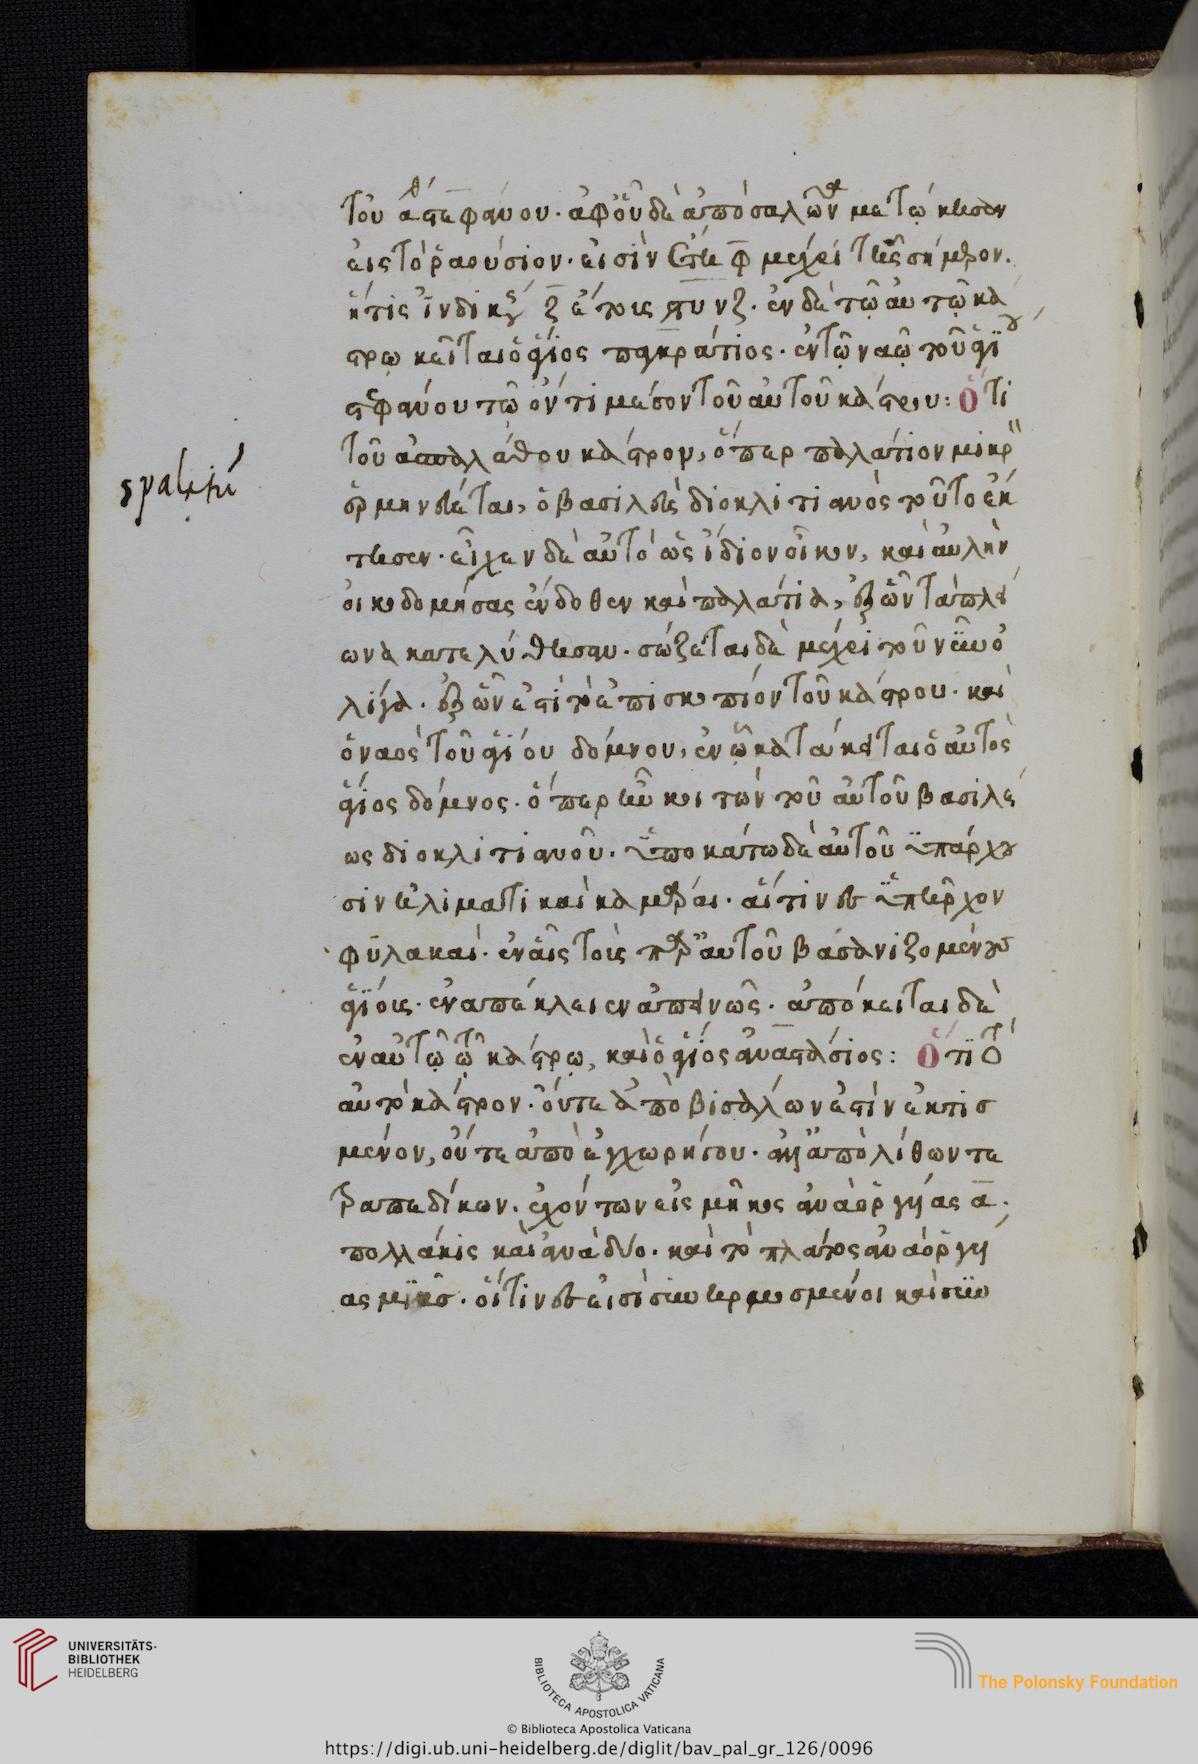 τοῦ ἀστεφάνου· ἀφ' οὗ δὲ ἀπὸ σαλῶνα μετῴκησαν
εἰς τὸ ῥαούσιον· εἰσὶν ἔτη φ̄ μέχρι τῆς σήμερον·
ἥτις ἰνδικ ζ̄ ἔτους ςυνζ. ἐν δὲ τῷ αὐτῷ κά
στρῳ κεῖται ὁ ἅγιος παγκράτιος· ἐν τῷ ναῷ τοῦ ἁγίου
στεφάνου τῷ ὄντι μέσον τοῦ αὐτοῦ κάστρου: Ὅτι
τοῦ ἀσπαλάθου κάστρον, ὅπερ παλάτιον μικρὸν
ἑρμηνεύεται, ὁ βασιλεὺς διοκλιτιανὸς τοῦτο ἔκ
spaletum
τισεν· εἶχεν δὲ αὐτὸ ὡς ἴδιον οἶκον, καὶ αὐλὴν
οἰκοδομήσας ἔνδοθεν καὶ παλάτια, ἐξ ὧν τὰ πλεί
ονα κατελύθησαν· σώζεται δὲ μέχρι τοῦ νῦν ὀ
λίγα· ἐξ ὧν ἐστὶ τὸ ἐπισκοπίον τοῦ κάστρου· καὶ
ὁ ναὸς τοῦ ἁγίου δόμνου, ἐν ᾧ κατάκειται ὁ αὐτὸς
ἅγιος δόμνος· ὅπερ ἦν κοιτὼν τοῦ αὐτοῦ βασιλέ
ως διοκλιτιανοῦ. ὑποκάτω δὲ αὐτοῦ ὑπάρχου
σιν εἰλήματι καὶ καμάραι· αἵτινες ὑπῆρχον
φυλακαί· ἐν αἷς τοὺς παρ' αὐτοῦ βασανιζομένους
ἁγίους· ἐναπέκλειεν ἀπηνῶς· ἀπόκειται δὲ
ἐν αὐτῷ τῷ κάστρῳ, καὶ ὁ ἅγιος ἀναστάσιος: Ὅτι τὸ
αὐτὸ κάστρον· οὔτε ἀπὸ βισάλων ἐστὶν ἐκτισ
μένον, οὔτε ἀπὸ ἐγχωρήγου· ἀλλ' ἀπὸ λίθων τε
τραπεδίκων. ἐχόντων εἰς μῆκος ἀνὰ ὀργυίας ᾱ·
πολλάκις καὶ ἀνὰ δύο· καὶ τὸ πλάτος ἀνὰ ὀργυί
ας μιᾶς. οἵτινες εἰσὶ συνηρμοσμένοι καὶ συν
UNIVERSITÄTS-
BIBLIOTHEK
HEIDELBERG
BIBLIOTECA APOSTOLICA VATICANA
The Polonsky Foundation
© Biblioteca Apostolica Vaticana
https://digi.ub.uni-heidelberg.de/diglit/bav_pal_gr_126/0096